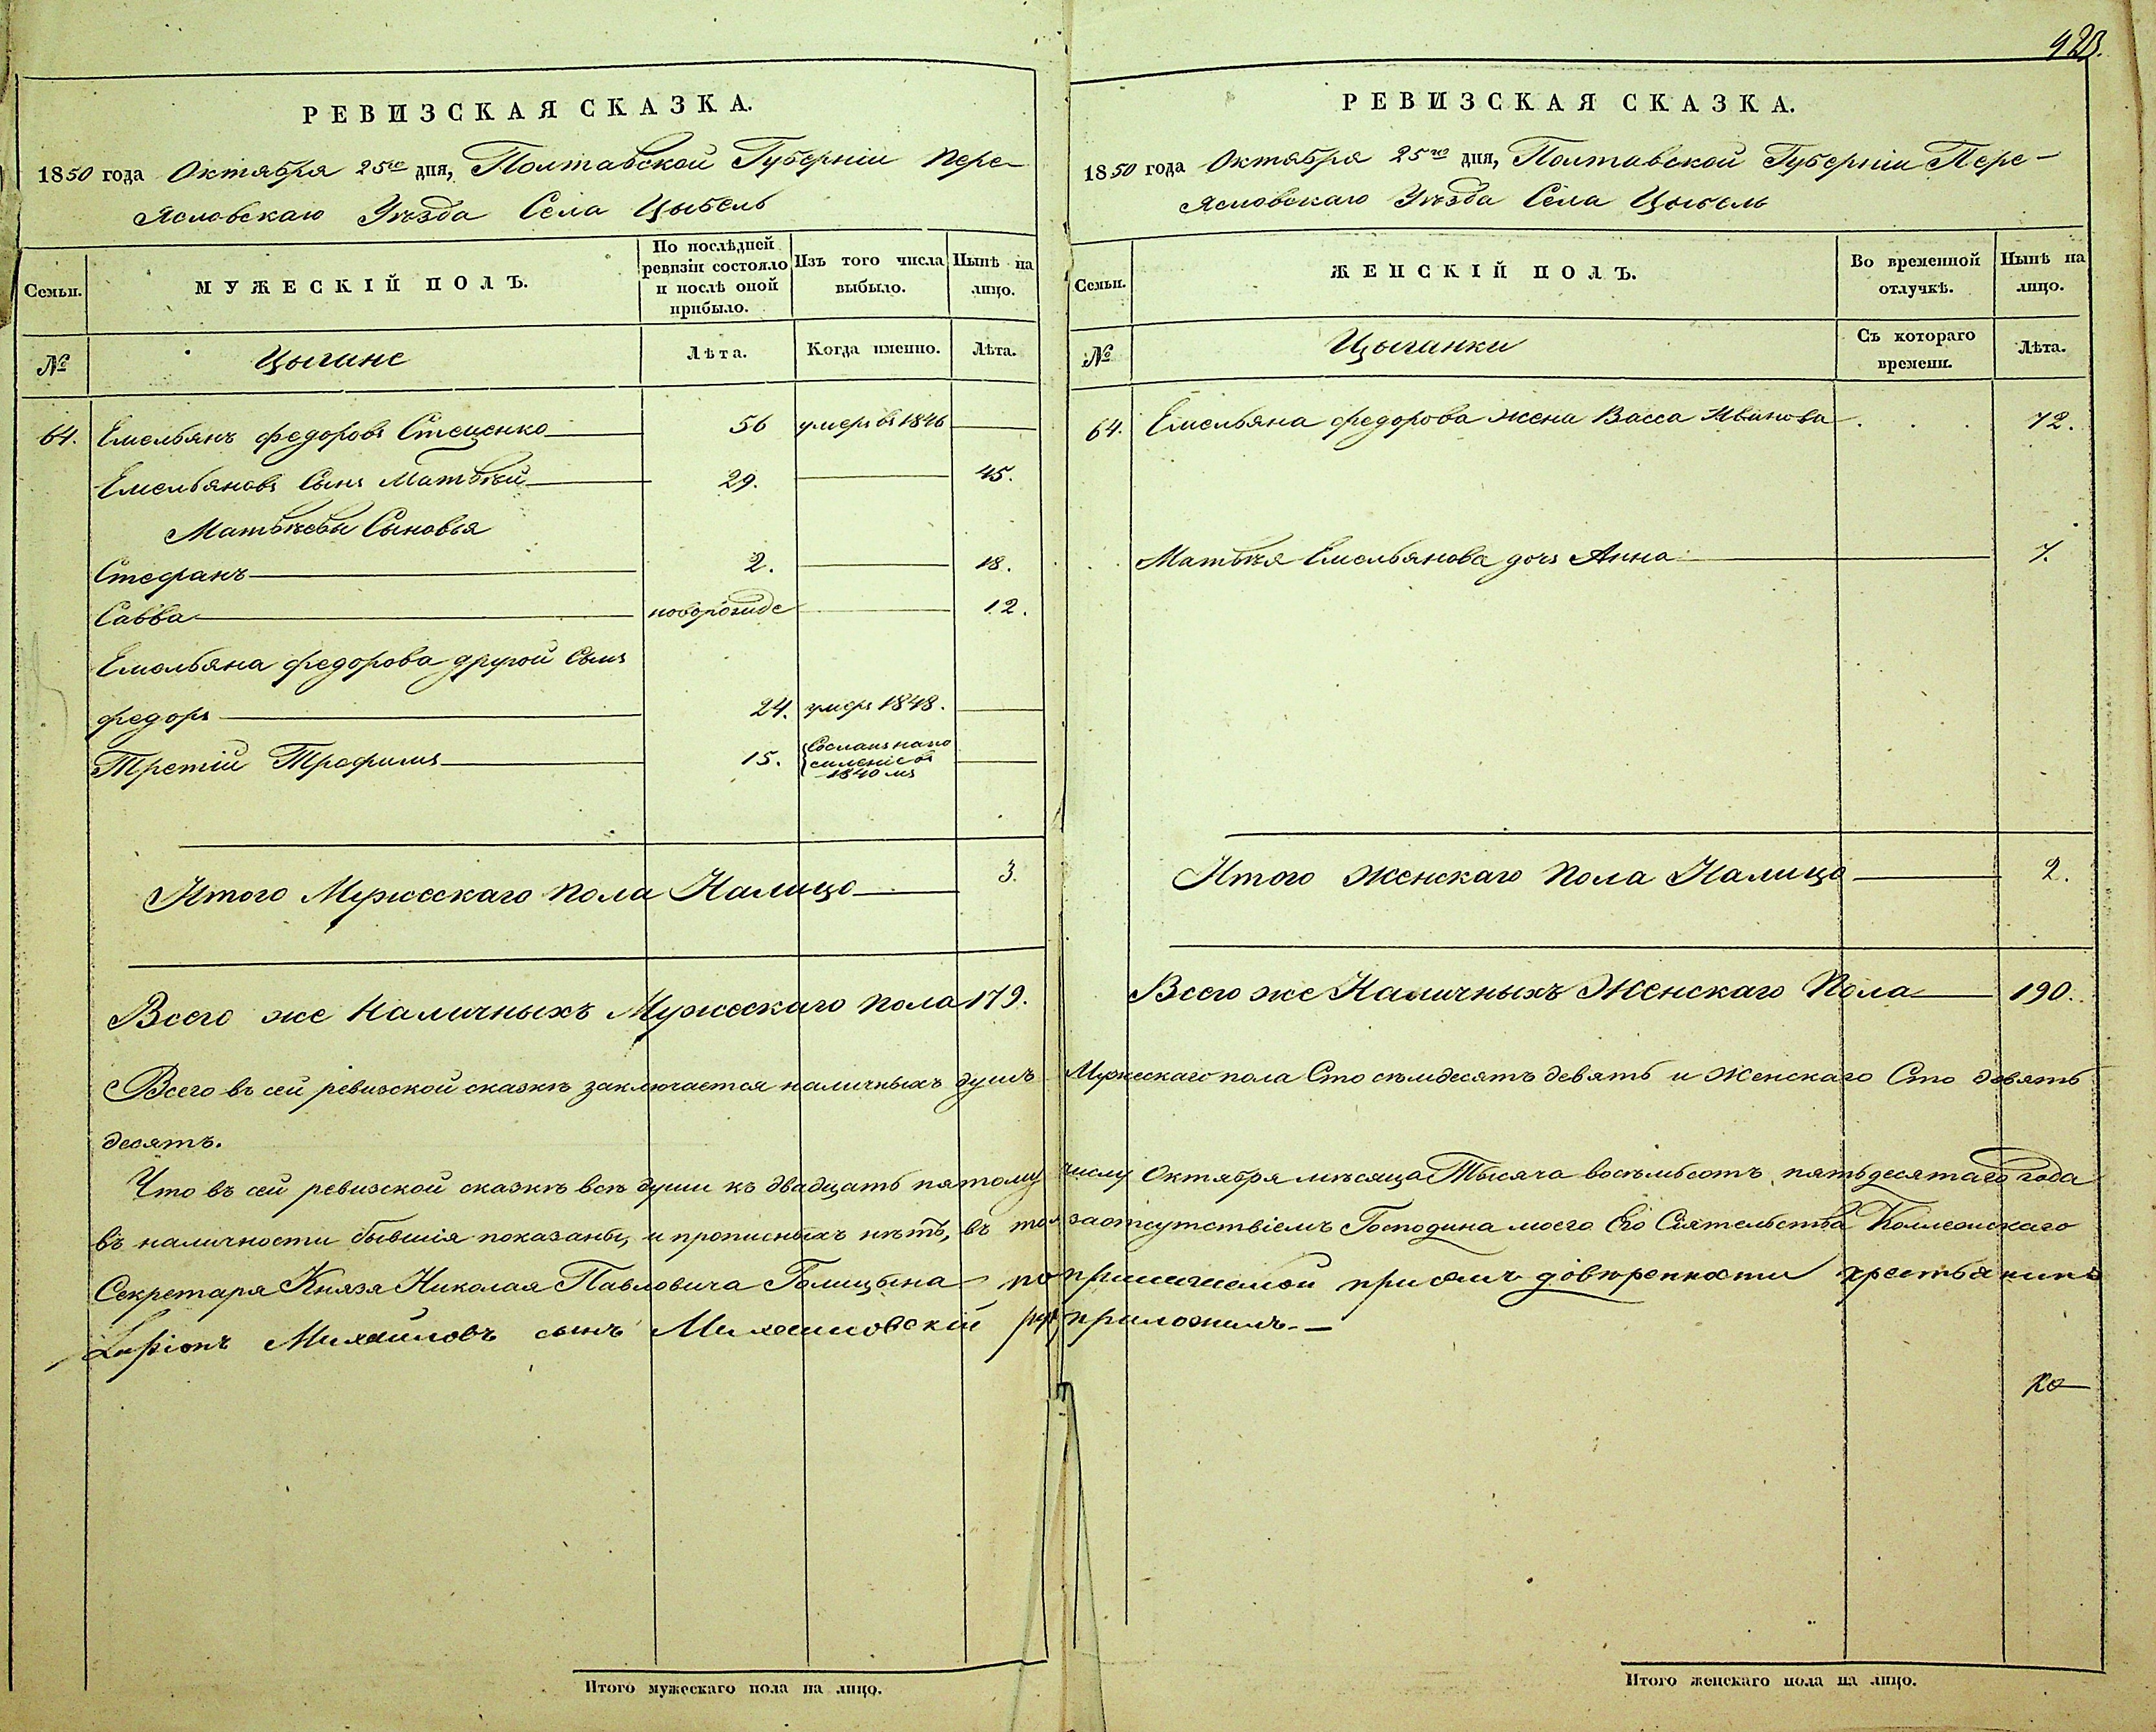 923.
РЕВИЗСКАЯ СКАЗКА.
1850 года Октября 25го дня, Полтавской Губерніи Пере-
яславскаго Уѣзда Села Цыбель
Семьи.
МУЖЕСКІЙ ПОЛЪ.
По послѣдней ревизіи состояло и послѣ оной прибыло.
Изъ того числа выбыло.
Нынѣ на лицо.
№
Цыгане
Лѣта.
Когда именно.
Лѣта.
64. Емельянъ Федоровъ Стеценко 56 умеръ въ 1846
Емельяновъ Сынъ Матвѣй 29. 45.
Матвѣевы Сыновья
Стефанъ 2. 18.
Савва новорожде 12.
Емельяна Федорова другой Сынъ
Федоръ 24. умеръ 1848.
Третій Трофимъ 15. Сосланъ на по
селеніе въ
1840 мъ
Итого Мужескаго пола Налицо 3.
Всего же Наличныхъ Мужескаго пола 179.
РЕВИЗСКАЯ СКАЗКА.
1850 года Октября 25го дня, Полтавской Губерніи Пере-
яславскаго Уѣзда Села Цыбель
Семьи.
ЖЕНСКІЙ ПОЛЪ.
Во временной отлучкѣ.
Нынѣ на лицо.
№
Цыганки
Съ котораго времени.
Лѣта.
64. Емельяна Федорова жена Васса Иванова 72.
Матвѣя Емельянова дочь Анна 7.
Итого Женскаго пола Налицо 2.
Всего же Наличныхъ Женскаго Пола 190.
Всего въ сей ревизской сказкѣ заключается наличныхъ душъ Мужескаго пола Сто семдесятъ девять и Женскаго Сто девять
десятъ.
Что въ сей ревизской сказкѣ всѣ души къ двадцать пятому числу Октября мѣсяца Тысяча восемьсотъ пятьдесятаго года
въ наличности бывшія показаны, и прописныхъ нѣтъ, въ том за отсутствіемъ Господина моего Его Сіятельства Коллежскаго
Секретаря Князя Николая Павловича Голицына по прилагаемой при семъ довѣренности крестьянинъ
Ларіонъ Михайловъ сынъ Михайловскій рук приложилъ.
Итого мужескаго пола на лицо.
Итого женскаго пола на лицо.